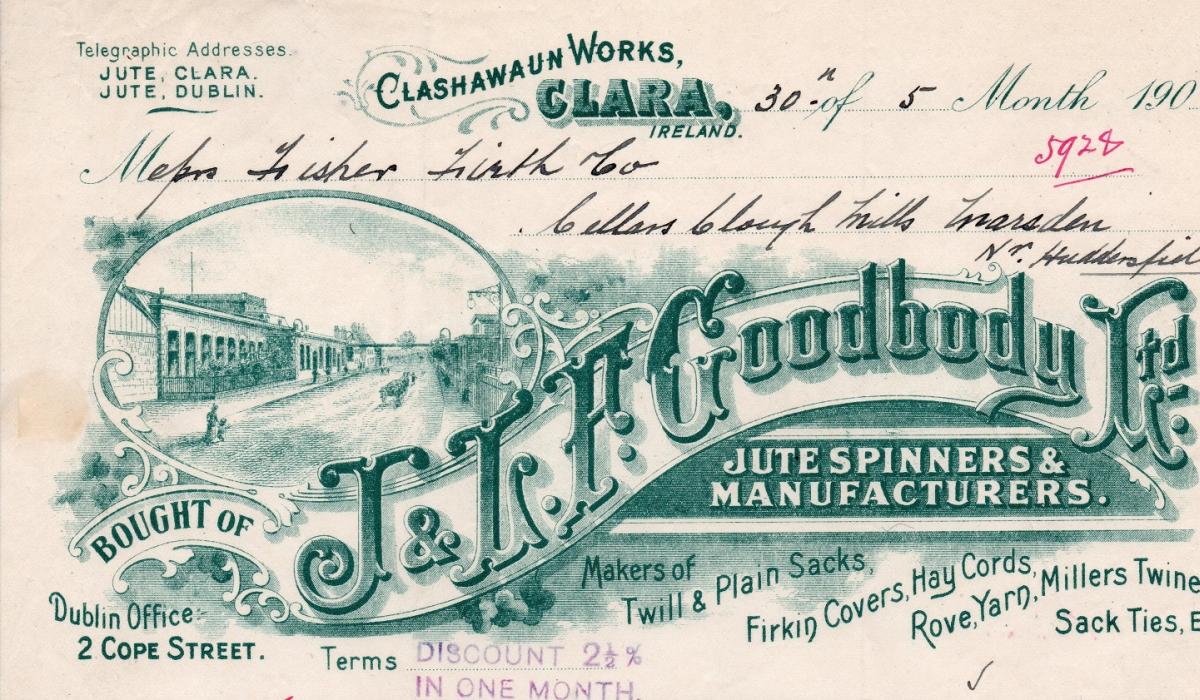 Telegraphic Addresses.
JUTE, CLARA.
JUTE, DUBLIN.
CLASHAWAUN WORKS,
CLARA,
IRELAND.
30 n of 5 Month 190
Messrs Fisher Firth & Co
5928
Cellars Clough Mills Marsden
Nr. Huddersfiel
BOUGHT OF
J. & L. F. Goodbody Ltd.
JUTE SPINNERS &
MANUFACTURERS.
Makers of
Twill & Plain Sacks,
Firkin Covers, Hay Cords,
Rove, Yarn, Millers Twine
Sack Ties, E
Dublin Office:-
2 COPE STREET.
Terms DISCOUNT 2½ %
IN ONE MONTH.